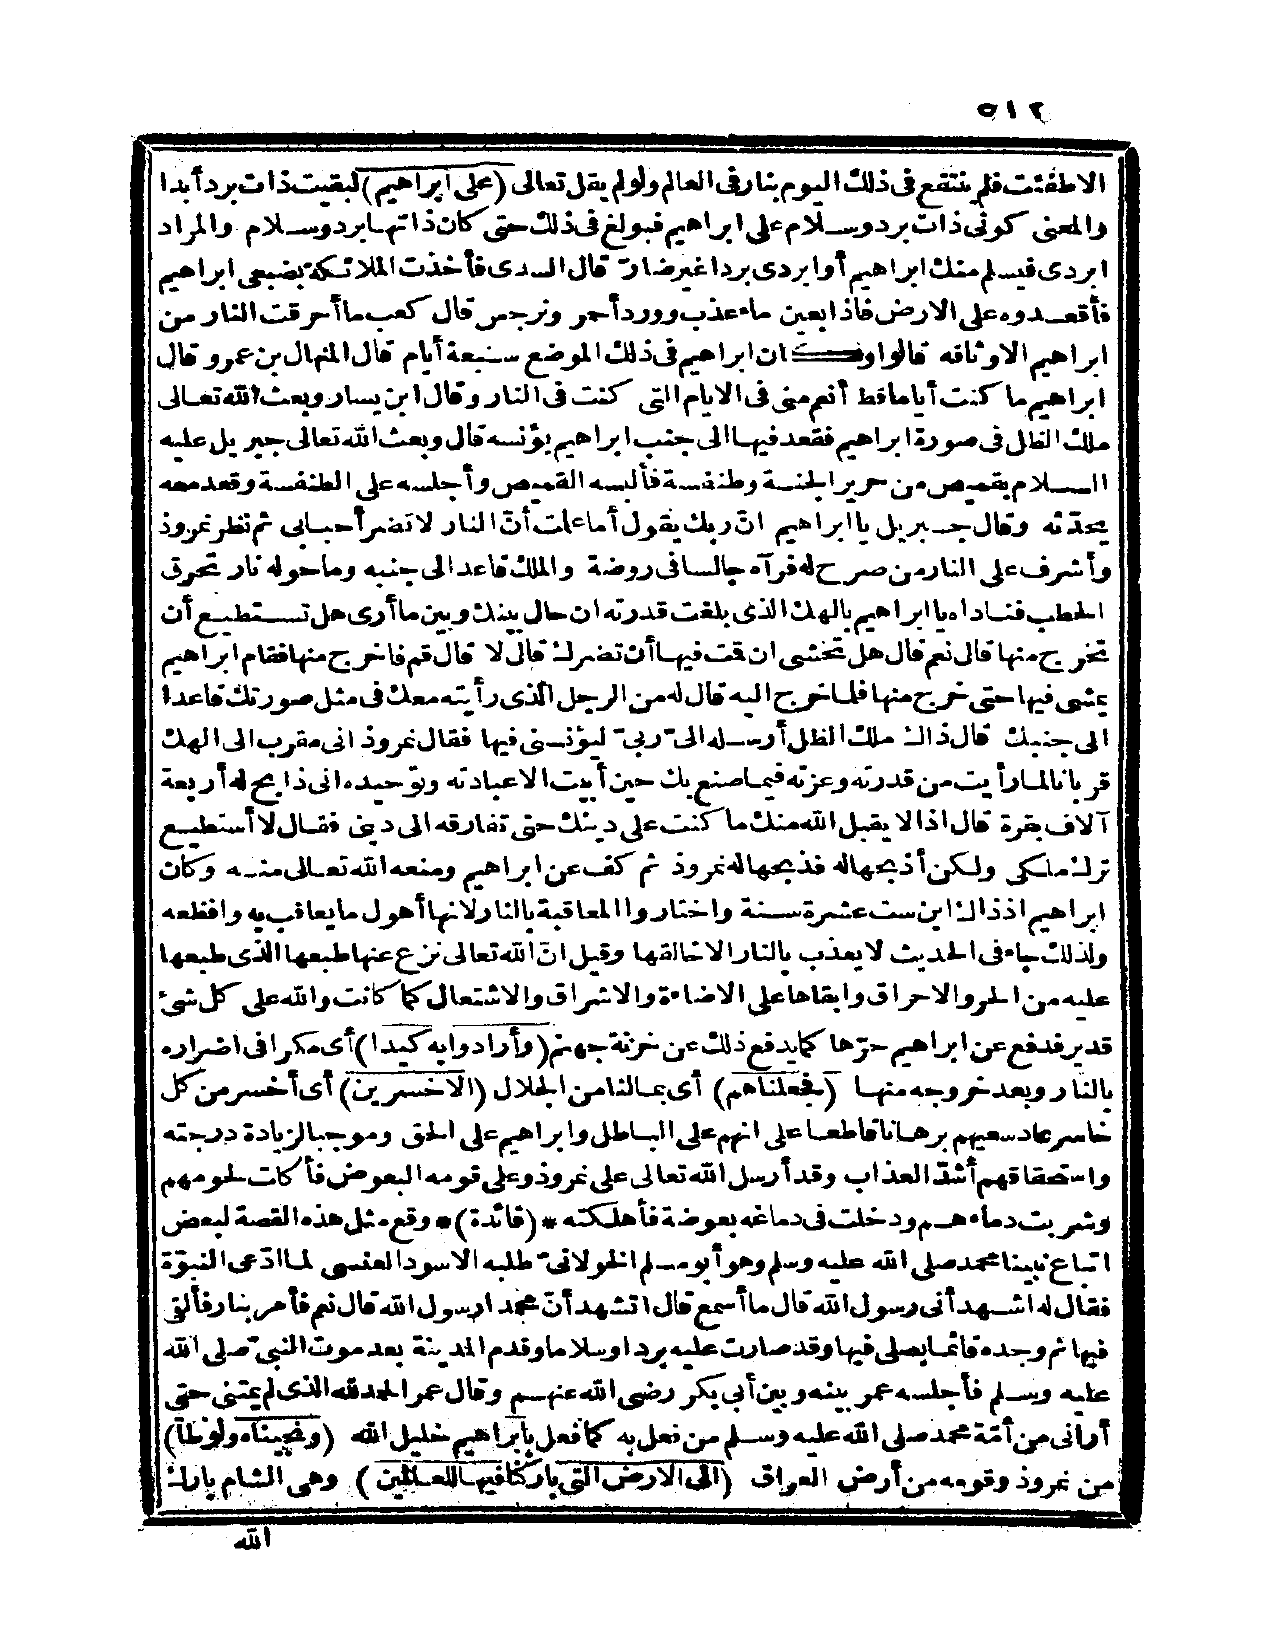 ٥١٢
الاطفئت فلم ينتفع فى ذلك اليوم بنار فى العالم ولو لم يقل تعالى (على ابراهيم) لبقيت ذات برد أبدا
والمعنى كونى ذات برد وسلام على ابراهيم فبولغ فى ذلك حتى كان ذاتها برد وسلام والمراد
ابردى فيسلم منك ابراهيم أو ابردى بردا غير ضارّ قال السدى فأخذت الملائكة بضبعى ابراهيم
فأقعدوه على الارض فاذا بعين ماء عذب وورد أحمر ونرجس قال كعب ما أحرقت النار من
ابراهيم الا وثاقه قالوا وكان ابراهيم فى ذلك الموضع سبعة أيام قال المنهال بن عمرو قال
ابراهيم ما كنت أياما قط أنعم منى فى الايام التى كنت فى النار وقال ابن يسار وبعث الله تعالى
ملك الظل فى صورة ابراهيم فقعد فيها الى جنب ابراهيم يؤنسه قال وبعث الله تعالى جبريل عليه
السلام بقميص من حرير الجنة وطنفسة فألبسه القميص وأجلسه على الطنفسة وقعد معه
يحدّثه وقال جبريل يا ابراهيم انّ ربك يقول أما علمت أنّ النار لا تضر أحبابى ثم نظر نمروذ
وأشرف على النار من صرح له فرآه جالسا فى روضة والملك قاعد الى جنبه وما حوله نار تحرق
الحطب فناداه يا ابراهيم بالهك الذى بلغت قدرته ان حال بينك وبين ما أرى هل تستطيع أن
تخرج منها قال نعم قال هل تخشى ان قت فيها أن تضرك قال لا قال قم فاخرج منها فقام ابراهيم
يمشى فيها حتى خرج منها فلما خرج اليه قال له من الرجل الذى رأيته معك فى مثل صورتك قاعدا
الى جنبك قال ذاك ملك الظل أرسله الىّ ربىّ ليؤنسنى فيها فقال نمروذ انى مقرب الى الهك
قربانا لما رأيت من قدرته وعزته فيما صنع بك حين أبيت الا عبادته وتوحيده انى ذابح له أربعة
آلاف بقرة قال اذا لا يقبل الله منك ما كنت على دينك حتى تفارقه الى دينى فقال لا أستطيع
ترك ملكى ولكن أذبحها له فذبحها له نمروذ ثم كف عن ابراهيم ومنعه الله تعالى منه وكان
ابراهيم اذ ذاك ابن ست عشرة سنة واختاروا المعاقبة بالنار لانها أهول ما يعاقب به وافظعه
ولذلك جاء فى الحديث لا يعذب بالنار الا خالقها وقيل انّ الله تعالى نزع عنها طبعها الذى طبعها
عليه من الحر والاحراق وابقاها على الاضاءة والاشراق والاشتعال كما كانت والله على كل شئ
قدير فدفع عن ابراهيم حرّها كما يدفع ذلك عن خزنة جهنم (وأرادوا به كيدا) أى مكرا فى اضراره
بالنار وبعد خروجه منها (فجعلناهم) أى بمالنا من الجلال (الاخسرين) أى أخسر من كل
خاسر عاد سعيهم برهانا قاطعا على انهم على الباطل وابراهيم على الحق وموجبا لزيادة درجته
واستحقاقهم أشدّ العذاب وقد أرسل الله تعالى على نمروذ وعلى قومه البعوض فأكلت لحومهم
وشربت دماءهم ودخلت فى دماغه بعوضة فأهلكته * (فائدة) * وقع مثل هذه القصة لبعض
اتباع نبينا محمد صلى الله عليه وسلم وهو أبو مسلم الخولانىّ طلبه الاسود العنسى لما ادّعى النبوّة
فقال له اشهد أنى رسول الله قال ما أسمع قال اتشهد أنّ محمد ارسول الله قال نعم فأمر بنار فألقى
فيها ثم وجده قائما يصلى فيها وقد صارت عليه بردا وسلاما وقدم المدينة بعد موت النبىّ صلى الله
عليه وسلم فأجلسه عمر بينه وبين أبى بكر رضى الله عنهم وقال عمر الحمد لله الذى لم يمتنى حتى
أرانى من أمّة محمد صلى الله عليه وسلم من فعل به كما فعل بابراهيم خليل الله (ونجيناه ولوطا)
من نمروذ وقومه من أرض العراق (الى الارض التى باركنا فيها للعالمين) وهى الشام بارك
الله